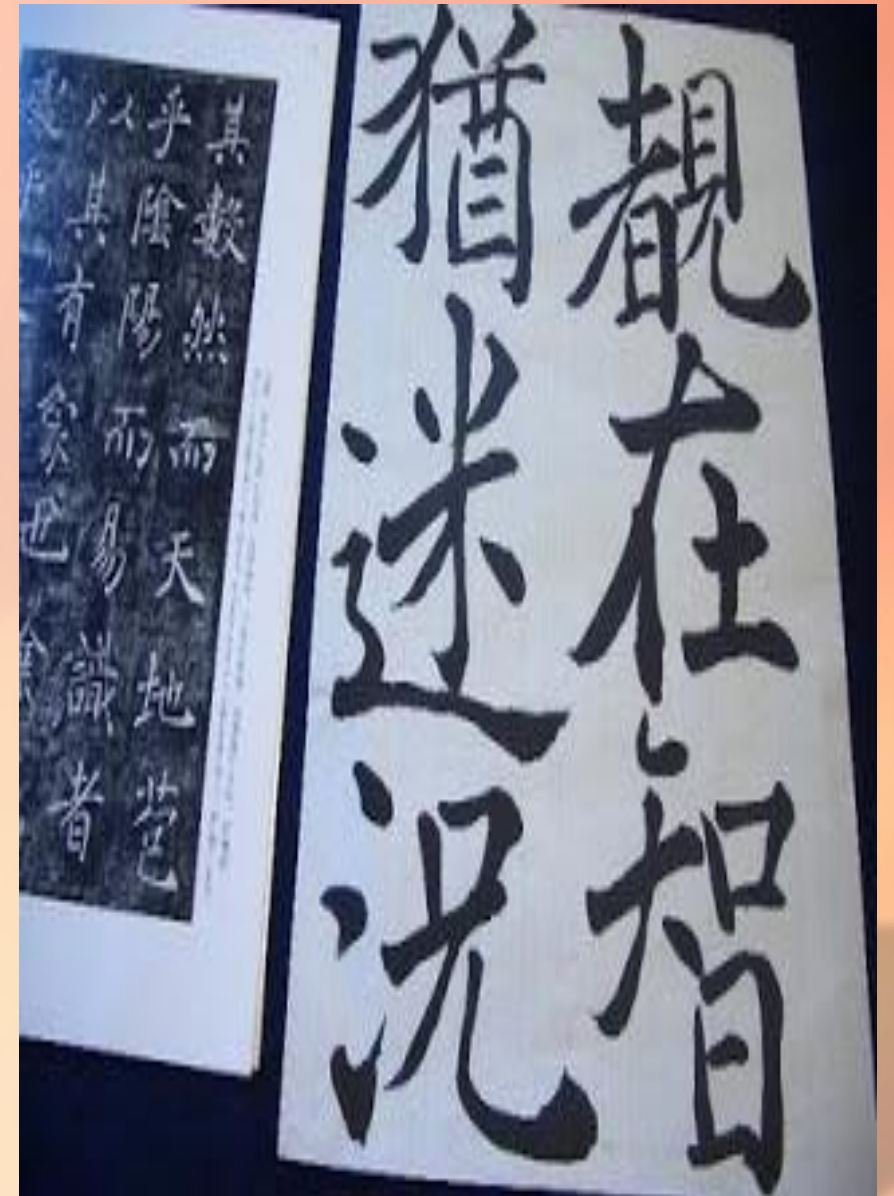 覩在智
猶迷況
其數然而天地苞
乎陰陽而易識者
以其有象也